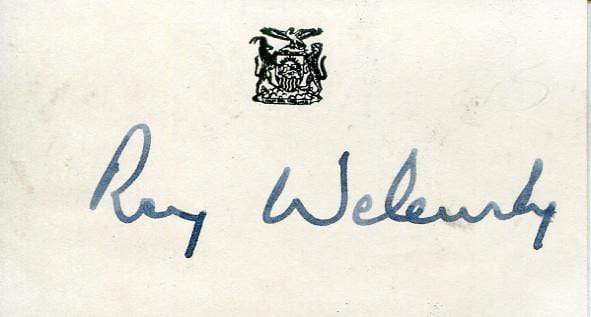 Roy Welensky